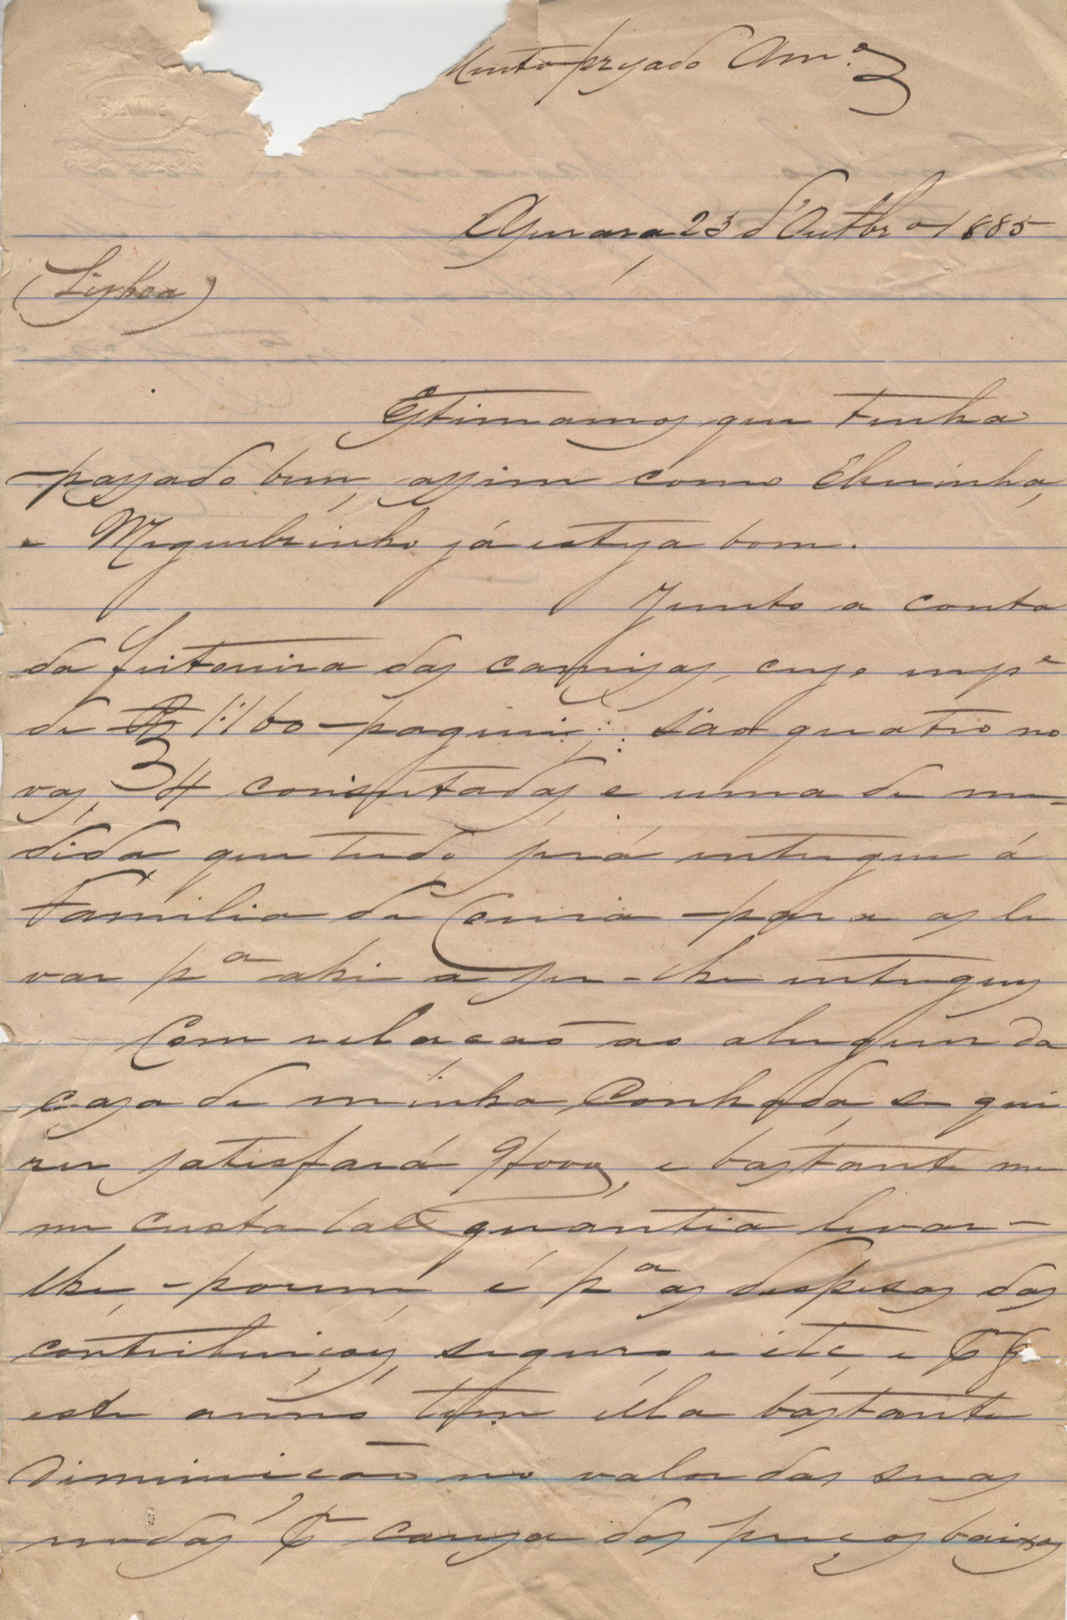 Muito prezado Am.º
23 d'Outbrº 1885
(Lisboa)
Estimamos que tenha
passado bem, assim como Elzirinha,
e Miguelzinho já esteja bom.
Junto a conta
da feitoria das camisas, cujo imp.e
de paguei; são quatro no
vas, 34 consertadas e uma de me-
dida que tudo entregue á
familia de para as le
var p.a ahi a entregues
Com relação ao aluguer da
casa de minha Conhada, se qui
zer satisfará e bastante me
me custa tal quantia levar-
lhe, porem, é p.a as despesas das
contribuiçoes, seguro e etc, e
este anno tem ella bastante
diminuição no valor das suas
rendas causa dos preços baixos